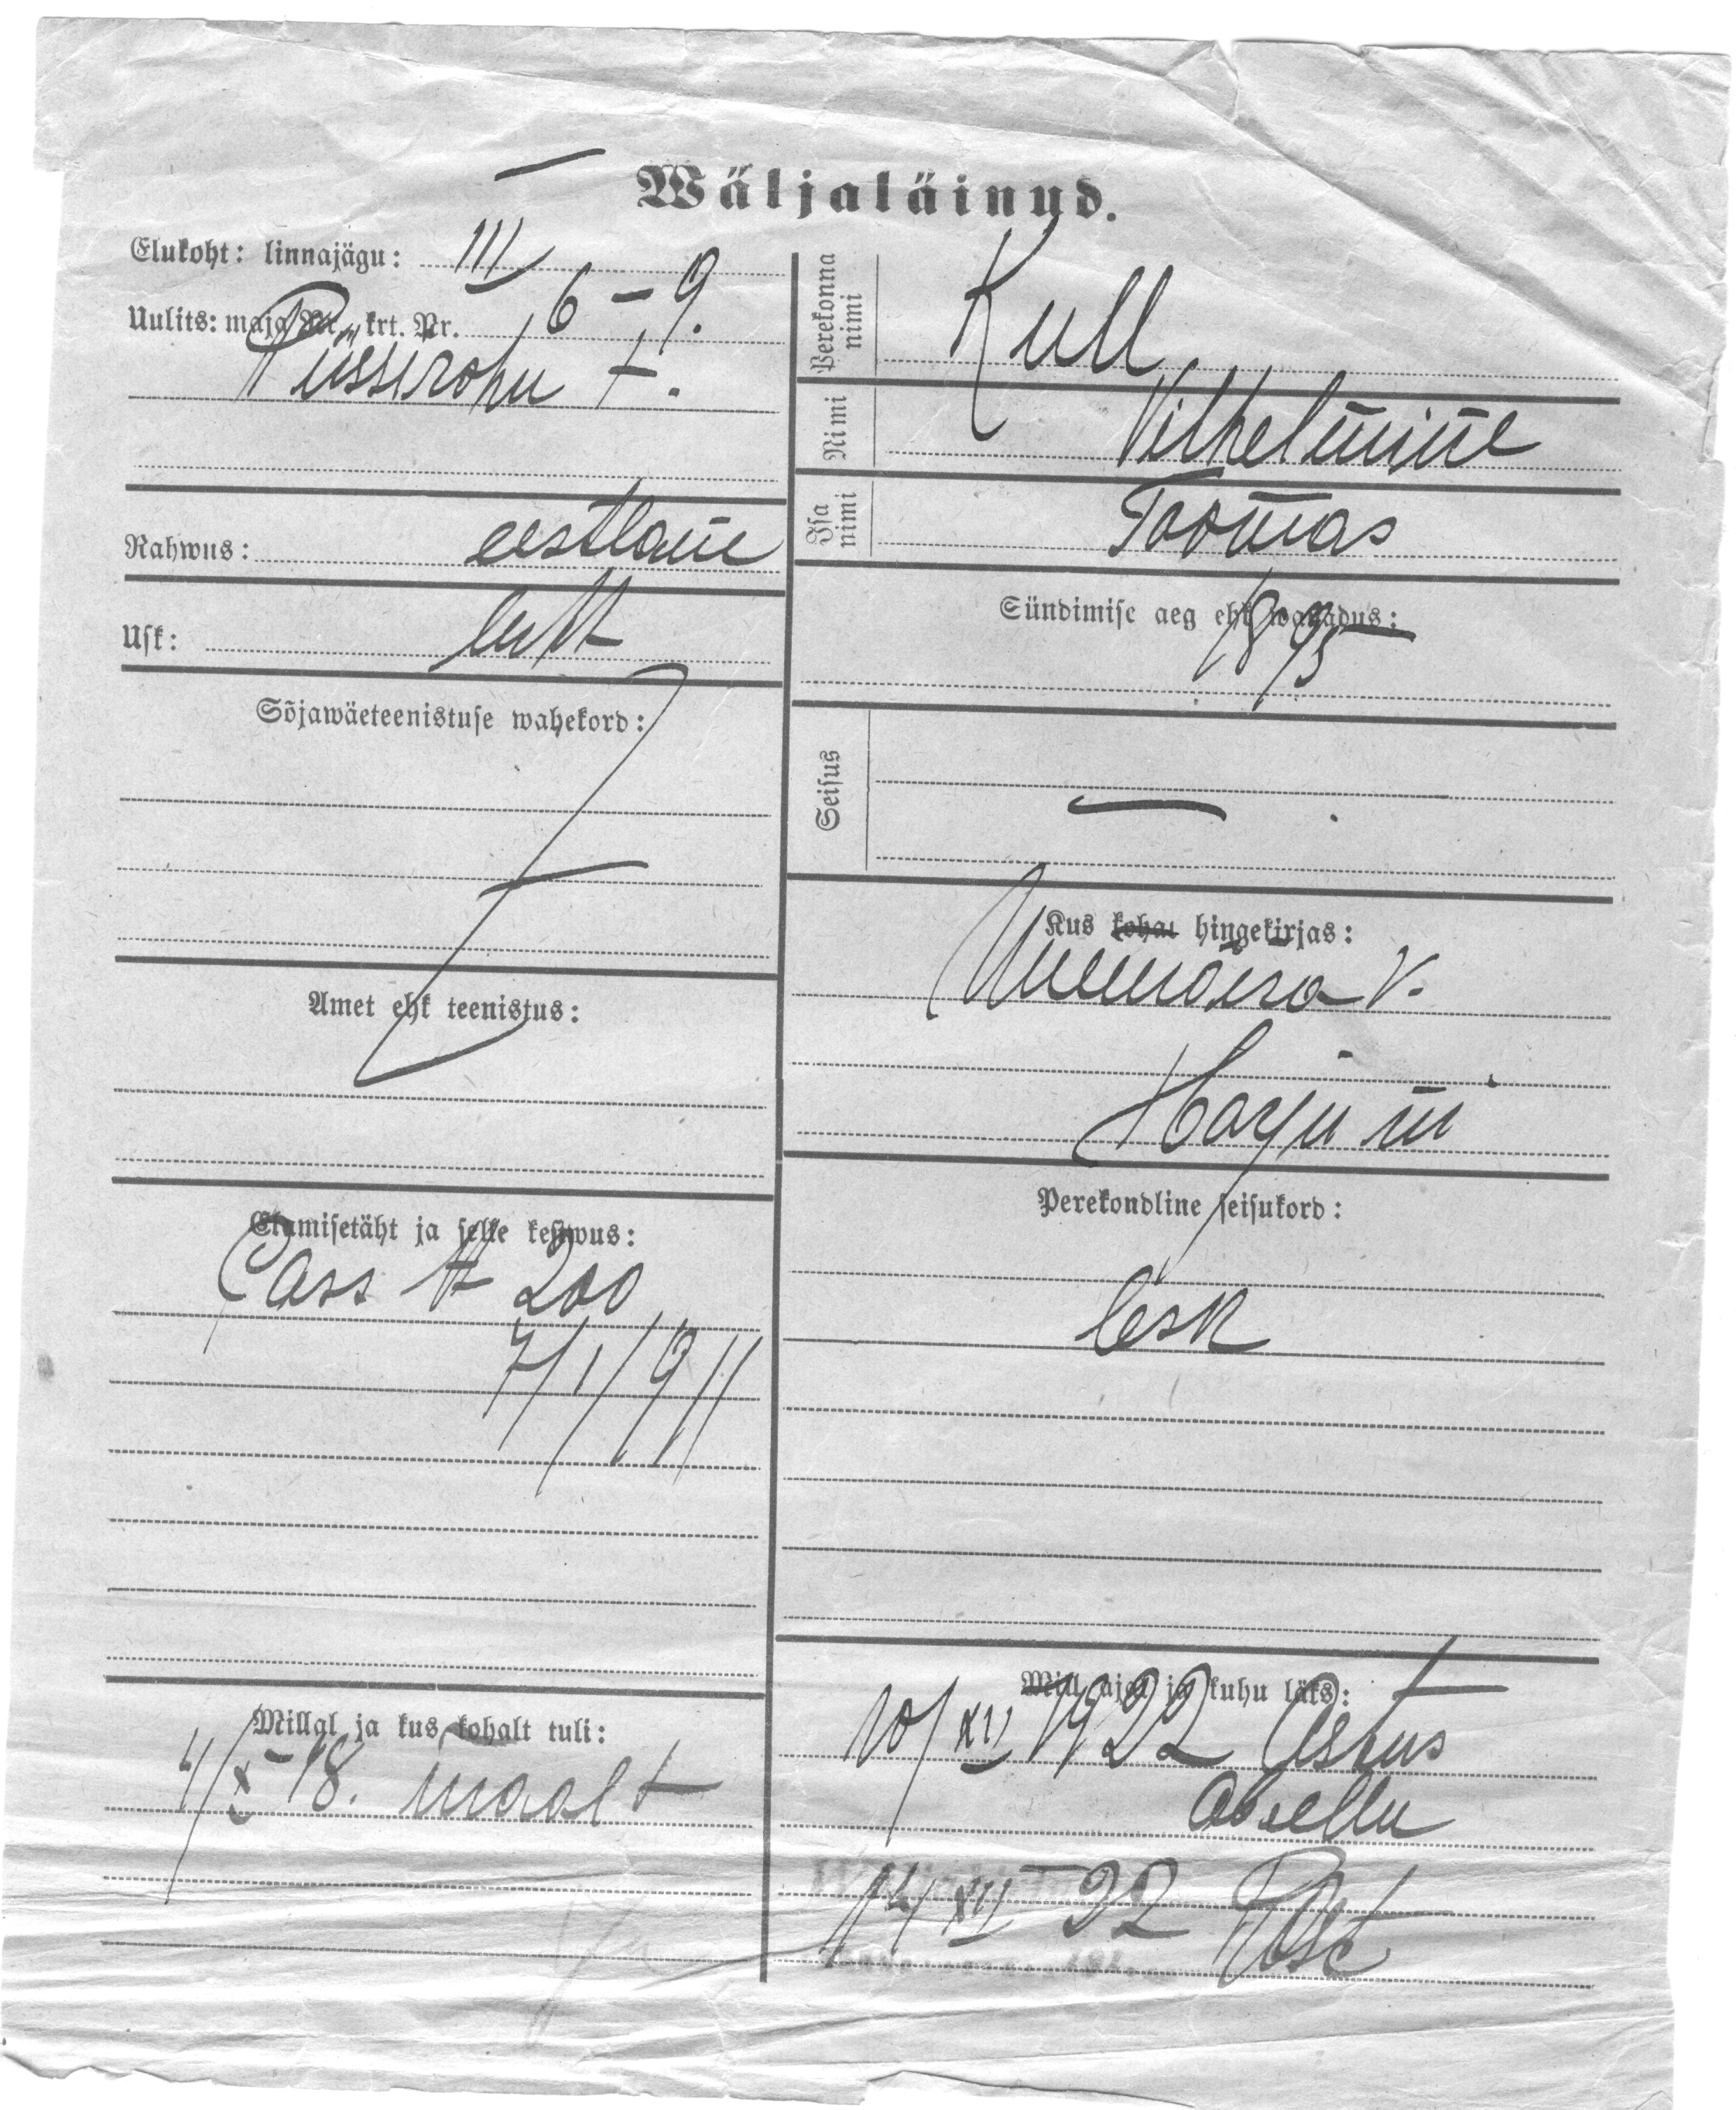 Wäljaläinud.
Elukoht: linnajägu: III
Uulits: maja Nr., krt. Nr. 6 – 9.
Püssirohu t.
Rahwus: eestlane
Usk: lutt
Sõjawäeteenistuse wahekord:
Amet ehk teenistus:
Elamisetäht ja selle kestwus:
Pass № 200
7/I/1911
Millal ja kus kohalt tuli:
4/X 18. maalt
Perekonna nimi Kull
Nimi Vilhelmine
Isa nimi Toomas
Sündimise aeg ehk wanadus:
1895
Seisus —
Kus kohal hingekirjas:
Uuemõisa v.
Harju m
Perekondline seisukord:
lesk
Mill ajal ja kuhu läks:
10/XII 1922 Astus
abiellu
14/XII 22